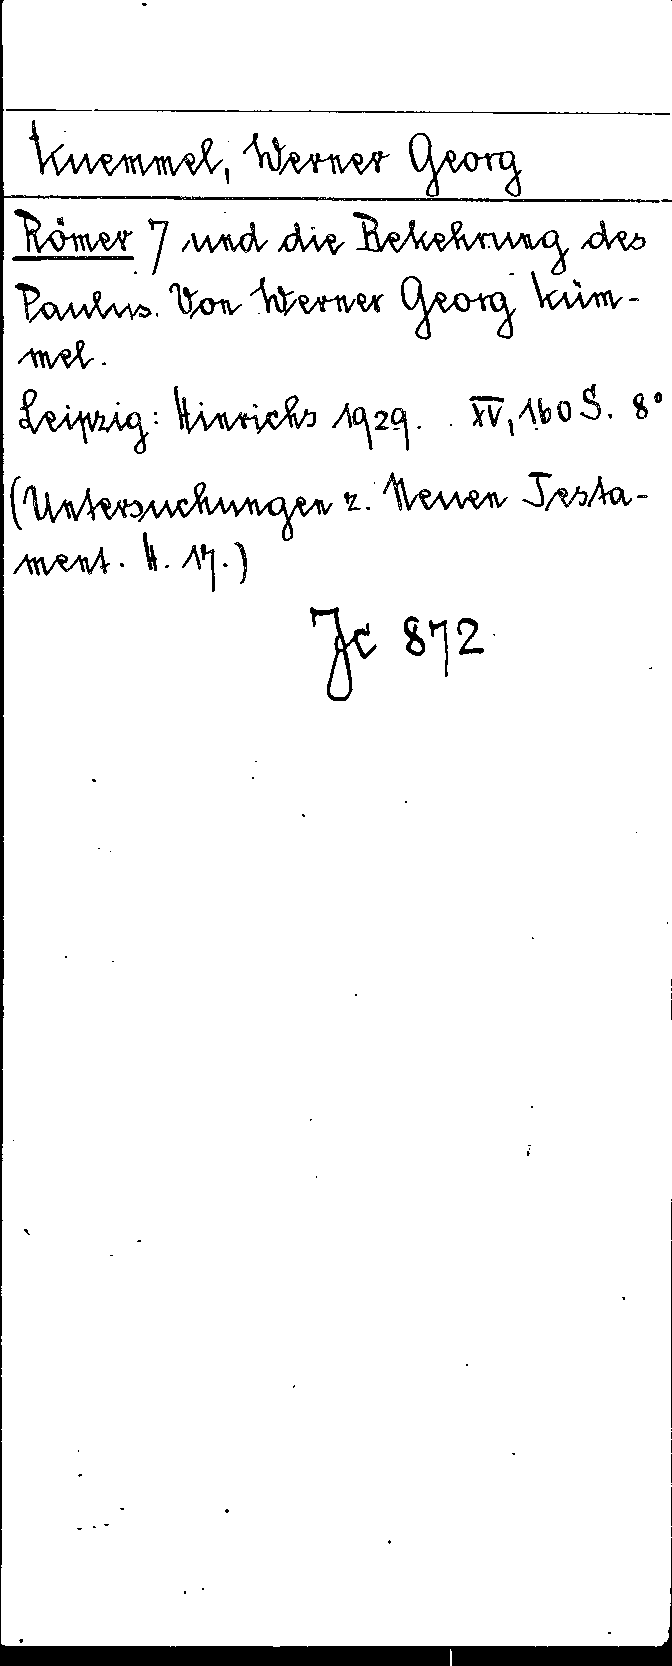 Kuemmel, Werner Georg
Römer 7 und die Bekehrung des
Paulus. Von Werner Georg Küm-
mel.
Leipzig: Hinrichs 1929. XV, 160 S. 8°
(Untersuchungen z. Neuen Testa-
ment. H. 17.)
Jc 872